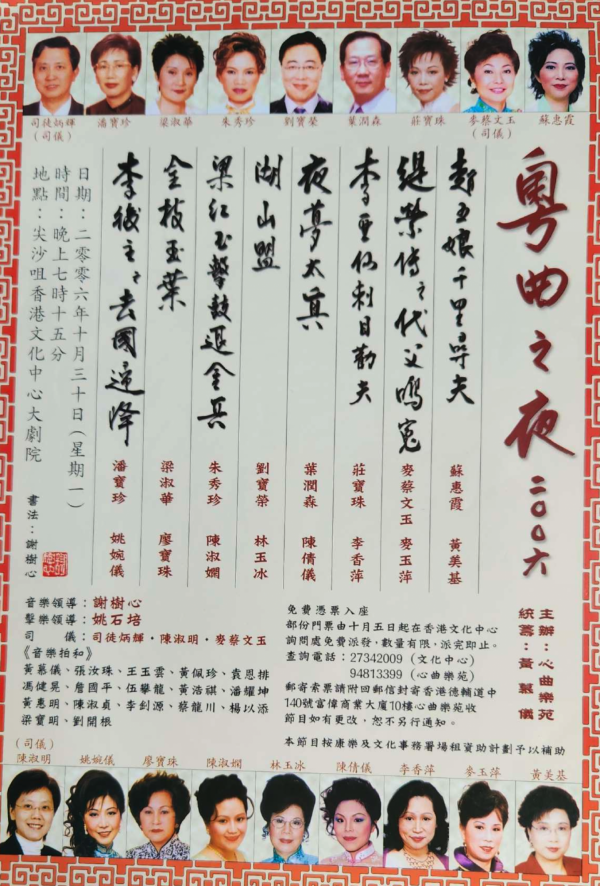 司徒炳輝 潘寶珍 梁淑華 朱秀珍 劉寶榮 葉潤森 莊寶珠 麥蔡文玉 蘇惠霞
(司儀) (司儀)
粵曲之夜 二〇〇六
主辦：心曲樂苑
統籌：黃慕儀
趙五娘千里尋夫 蘇惠霞 黃美基
緹縈傳之代父鳴冤 麥蔡文玉 麥玉萍
李亞仙刺目勸夫 莊寶珠 李香萍
夜夢太真 葉潤森 陳倩儀
湖山盟 劉寶榮 林玉冰
梁紅玉擊鼓退金兵 朱秀珍 陳淑嫻
金枝玉葉 梁淑華 廖寶珠
李後主之去國降 潘寶珍 姚婉儀
日期：二零零六年十月三十日(星期一)
時間：晚上七時十五分
地點：尖沙咀香港文化中心大劇院
書法：謝樹心
音樂領導：謝樹心
擊樂領導：姚石培
司　儀：司徒炳輝・陳淑明・麥蔡文玉
《音樂拍和》
黃慕儀、張汝珠、王玉雲、黃佩珍、袁恩排
馮健晃、詹國平、伍攀龍、黃浩祺、潘耀坤
黃惠明、陳淑貞、李釗源、蔡龍川、楊以添
梁寶明、劉開根
免費憑票入座
部份門票由十月五日起在香港文化中心
詢問處免費派發，數量有限，派完即止。
查詢電話：27342009 (文化中心)
94813399 (心曲樂苑)
郵寄索票請附回郵信封寄香港德輔道中
140號富偉商業大廈10樓心曲樂苑收
節目如有更改，恕不另行通知。
本節目按康樂及文化事務署場租資助計劃予以補助
(司儀)
陳淑明 姚婉儀 廖寶珠 陳淑嫻 林玉冰 陳倩儀 李香萍 麥玉萍 黃美基